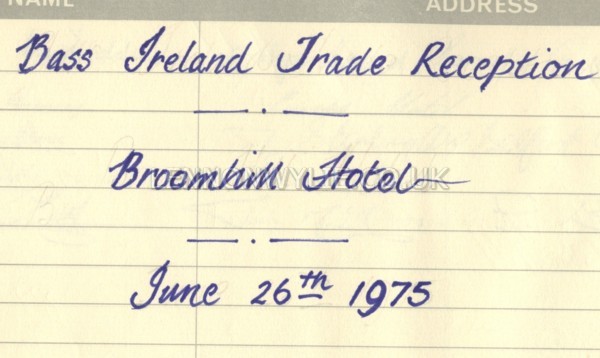 NAME ADDRESS
Bass Ireland Trade Reception
Broomhill Hotel
June 26th 1975